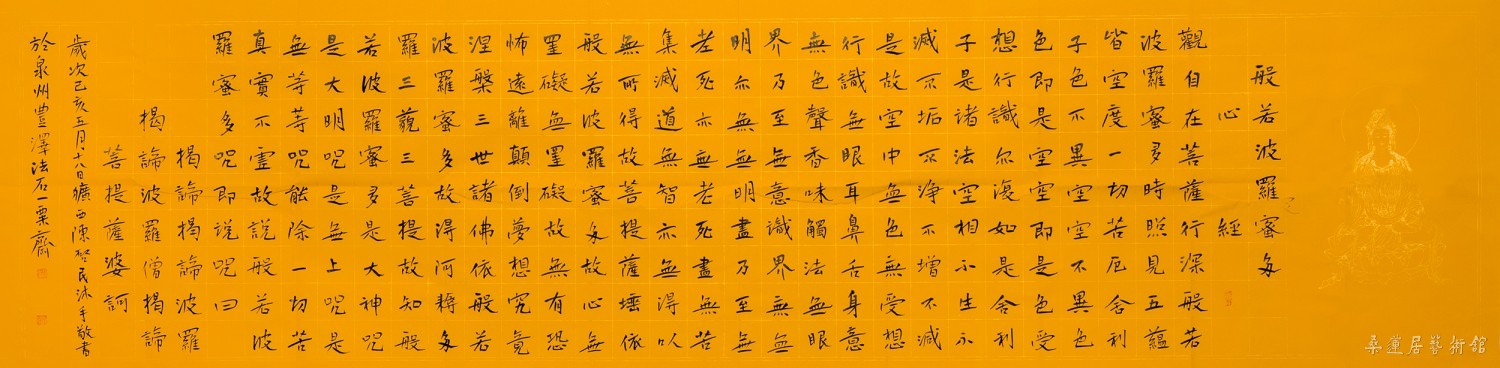 般若波羅蜜多
心經
觀自在菩薩行深般若
波羅蜜多時照見五蘊
皆空度一切苦厄舍利
子色不異空空不異色
色即是空空即是色受
想行識亦復如是舍利
子是諸法空相不生不
滅不垢不淨不增不減
是故空中無色無受想
行識無眼耳鼻舌身意
無色聲香味觸法無眼
界乃至無意識界無無
明亦無無明盡乃至無
老死亦無老死盡無苦
集滅道無智亦無得以
無所得故菩提薩埵依
般若波羅蜜多故心無
罣礙無罣礙故無有恐
怖遠離顛倒夢想究竟
涅槃三世諸佛依般若
波羅蜜多故得阿耨多
羅三藐三菩提故知般
若波羅蜜多是大神呪
是大明呪是無上呪是
無等等呪能除一切苦
真實不虛故說般若波
羅蜜多呪即說呪曰
揭諦揭諦波羅
揭諦波羅僧揭諦
菩提薩婆訶
歲次己亥五月十八日西陳民沐手敬書
於泉州豐澤法石一粟齋
桑蓮居藝術館